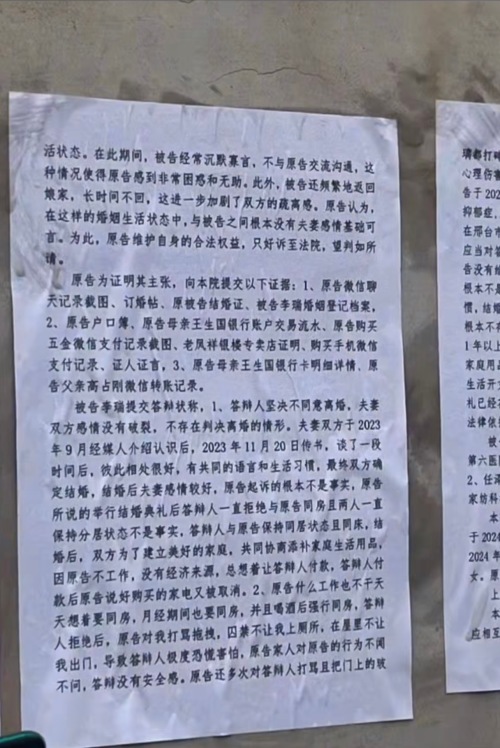 活状态。在此期间，被告经常沉默寡言，不与原告交流沟通，这
种情况使得原告感到非常困惑和无助。此外，被告还频繁地返回
娘家，长时间不回，这进一步加剧了双方的疏离感。原告认为，
在这样的婚姻生活状态中，与被告之间根本没有夫妻感情基础可
言。为此，原告维护自身的合法权益，只好诉至法院，望判如所
请。
原告为证明其主张，向本院提交以下证据：1、原告微信聊
天记录截图、订婚帖、原被告结婚证、被告李瑞婚姻登记档案，
2、原告户口簿、原告母亲王生国银行账户交易流水、原告购买
五金微信支付记录截图、老凤祥银楼专卖店证明、购买手机微信
支付记录、证人证言，3、原告母亲王生国银行卡明细详情、原
告父亲高占刚微信转账记录。
被告李瑞提交答辩状称，1、答辩人坚决不同意离婚，夫妻
双方感情没有破裂，不存在判决离婚的情形。夫妻双方于2023
年9月经媒人介绍认识后，2023年11月20日传书，谈了一段
时间后，彼此相处很好，有共同的语言和生活习惯，最终双方确
定结婚，结婚后夫妻感情较好，原告起诉的根本不是事实，原告
所说的举行结婚典礼后答辩人一直拒绝与原告同房且两人一直
保持分居状态不是事实，答辩人与原告保持同居状态且同床，结
婚后，双方为了建立美好的家庭，共同协商添补家庭生活用品，
因原告不工作，没有经济来源，总想着让答辩人付款，答辩人付
款后原告说好购买的家电又被取消。2、原告什么工作也不干天
天想着要同房，月经期间也要同房，并且喝酒后强行同房，答辩
人拒绝后，原告对我打骂拖拽，囚禁不让我上厕所，在屋里不让
我出门，导致答辩人极度恐慌害怕，原告家人对原告的行为不闻
不问，答辩没有安全感。原告还多次对答辩人打骂且把门上的玻
璃都打碎
心理伤害
告于202
抑郁症，
在邢台市
应当对答
告没有结
根本不是
惯，结婚
根本不存
1年以上
家庭用品
生活开支
礼已经
法律依
被告
第六医院
2、任泽
家纺科
本
于2024
2024年
女。原
上
本
应相互